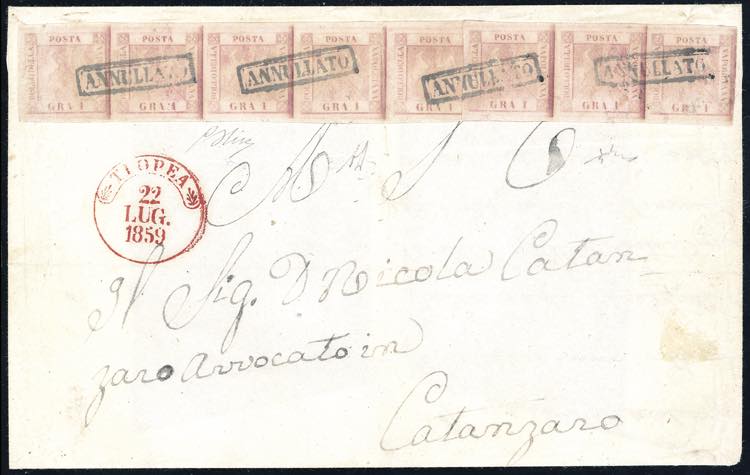 POSTA POSTA POSTA POSTA POSTA POSTA POSTA POSTA
BOLLO DELLA BOLLO DELLA BOLLO DELLA BOLLO DELLA BOLLO DELLA BOLLO DELLA BOLLO DELLA BOLLO DELLA
ANNULLATO ANNULLATO ANNULLATO ANNULLATO
GRA 1 GRA 1 GRA 1 GRA 1 GRA 1 GRA 1 GRA 1 GRA 1
TROPEA
22
LUG.
1859
Il Sig. D Nicola Catan
zaro Avvocato in
Catanzaro